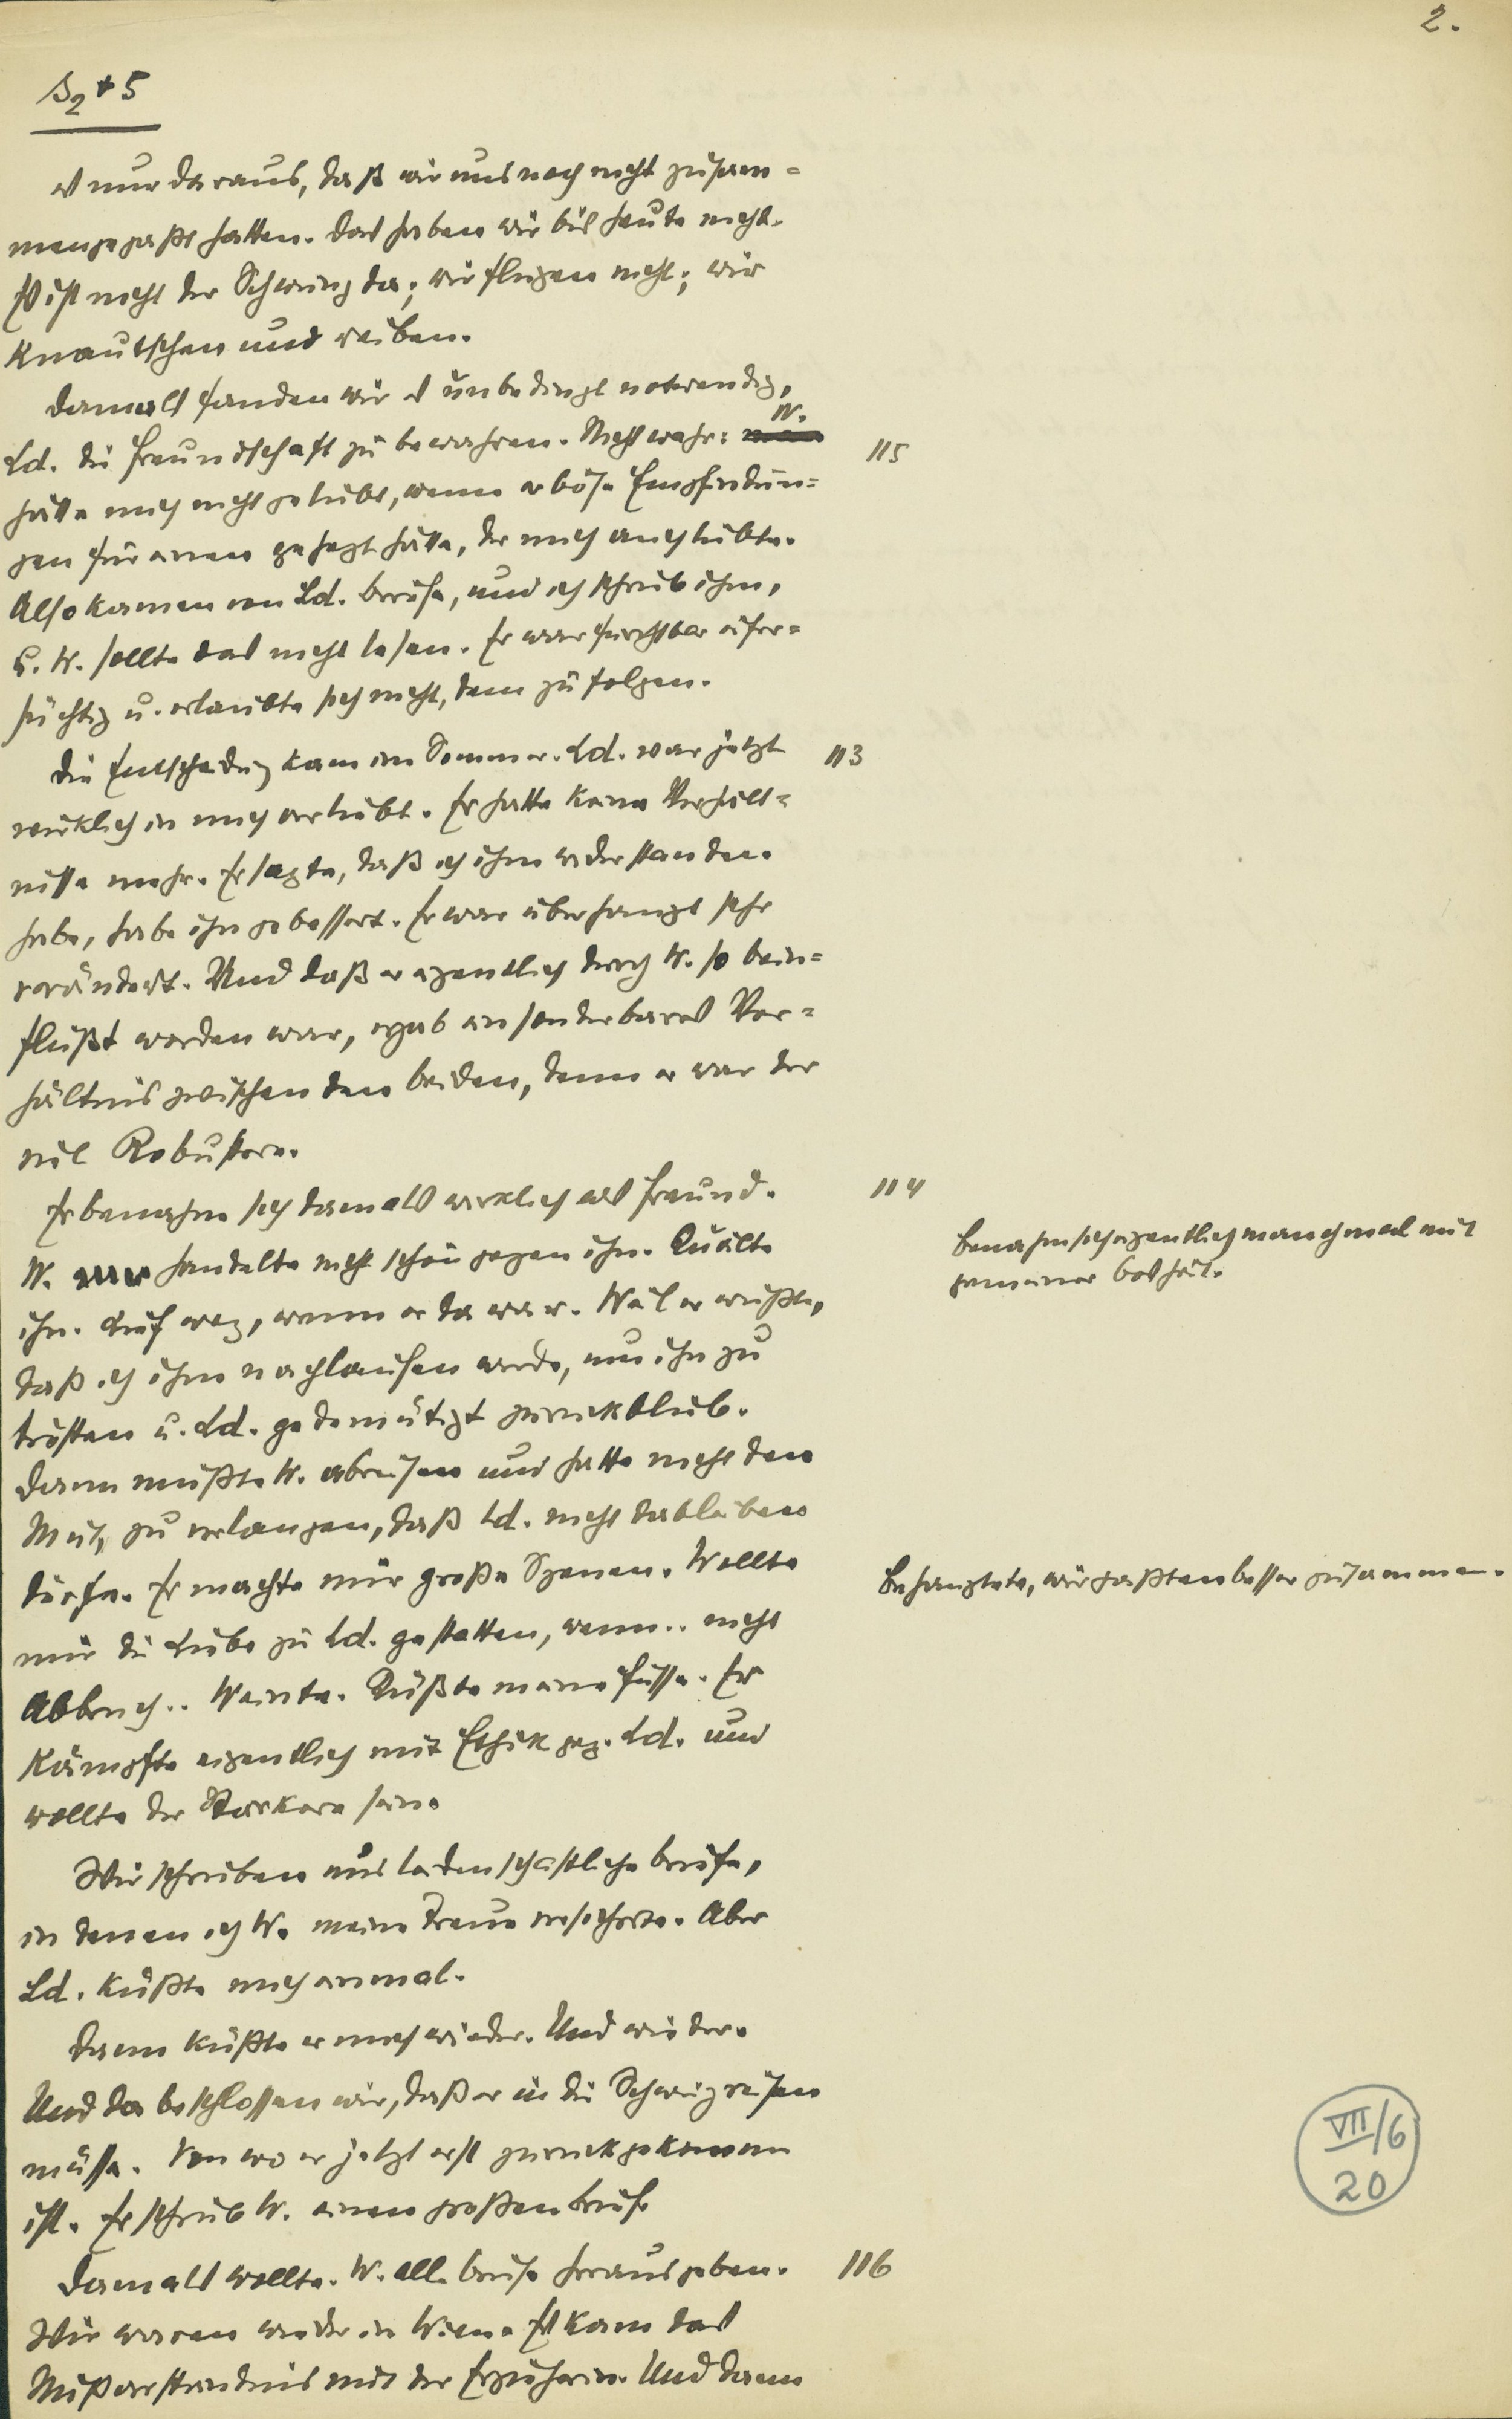 2.
s2 + 5
es nur daraus, daß wir uns noch nicht zusam=
mengepaßt hatten. Das haben wir bis heute nicht.
Es ist nicht der Schwung da; wir fliegen nicht; wir
knautschen und reiben.
Damals fanden wir es unbedingt notwendig,
Ld. die Freundschaft zu bewahren. Nicht wahr: W.
115
hätte mich nicht geliebt, wenn er böse Empfindun=
gen für einen gehegt hätte, der mich auch liebte.
Also kamen von Ld. Briefe, und ich schrieb ihm,
u. W. sollte das nicht lesen. Er war furchtbar eifer=
süchtig u. erlaubte sich nicht, dem zu folgen.
Die Entscheidung kam im Sommer. Ld. war jetzt
113
wirklich in mich verliebt. Er hatte keine Verhält=
nisse mehr. Er sagte, daß ich ihm widerstanden
habe, habe ihn gebessert. Er war überhaupt sehr
verändert. Und daß er eigentlich durch W. so beein=
flußt worden war, ergab ein sonderbares Ver=
hältnis zwischen den beiden, denn er war der
viel Robustere.
Er benahm sich damals wirklich als Freund.
114
W. handelte nicht schön gegen ihn. Quälte
Benahm sich eigentlich manchmal mit
gemeiner Bosheit.
ihn. Lief weg, wenn er da war. Weil er wußte,
daß ich ihm nachlaufen werde, um ihn zu
trösten u. Ld. gedemütigt zurückblieb.
Dann mußte W. abreisen und hatte nicht den
Mut, zu verlangen, daß Ld. nicht dableiben
dürfe. Er machte mir große Szenen. Wollte
Behauptete, wir paßten besser zusammen.
mir die Liebe zu Ld. gestatten, wenn.. nicht
Abbruch.. Weinte. Küßte meine Füsse. Er
kämpfte eigentlich mit Ethik geg. Ld. und
wollte der Stärkere sein.
Wir schrieben uns leidenschaftliche Briefe,
in denen ich W. meine Treue versicherte. Aber
Ld. küßte mich einmal.
Dann küßte er mich wieder. Und wieder.
Und da beschlossen wir, daß er in die Schweiz reisen
müsse. Von wo er jetzt erst zurückgekommen
ist. Er schrieb W. einen großen Brief.
VII/6
20
Damals wollte W. alle Briefe herausgeben.
116
Wir waren wieder in Wien. Es kam das
Mißverständnis mit der Erzieherin. Und dann